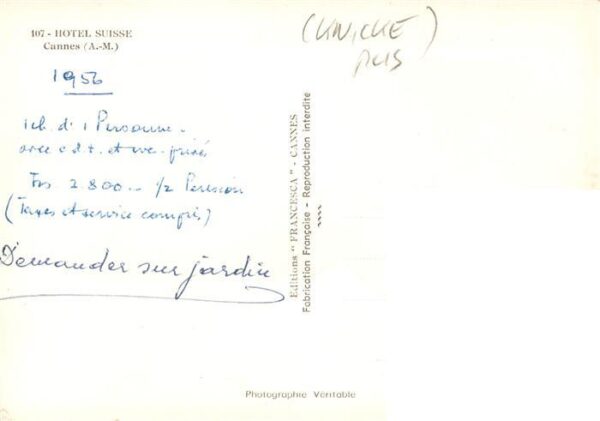 107 - HOTEL SUISSE
Cannes (A.-M.)
1956
1 ch. d' 1 Personne -
avec c d t. et w c. privés
Frs 2.800.- 1/2 Pension
(Taxes et service compris)
Demander sur jardin
(KNICKE)
Editions "FRANCESCA" - CANNES
Fabrication Française - Reproduction interdite
Photographie Véritable